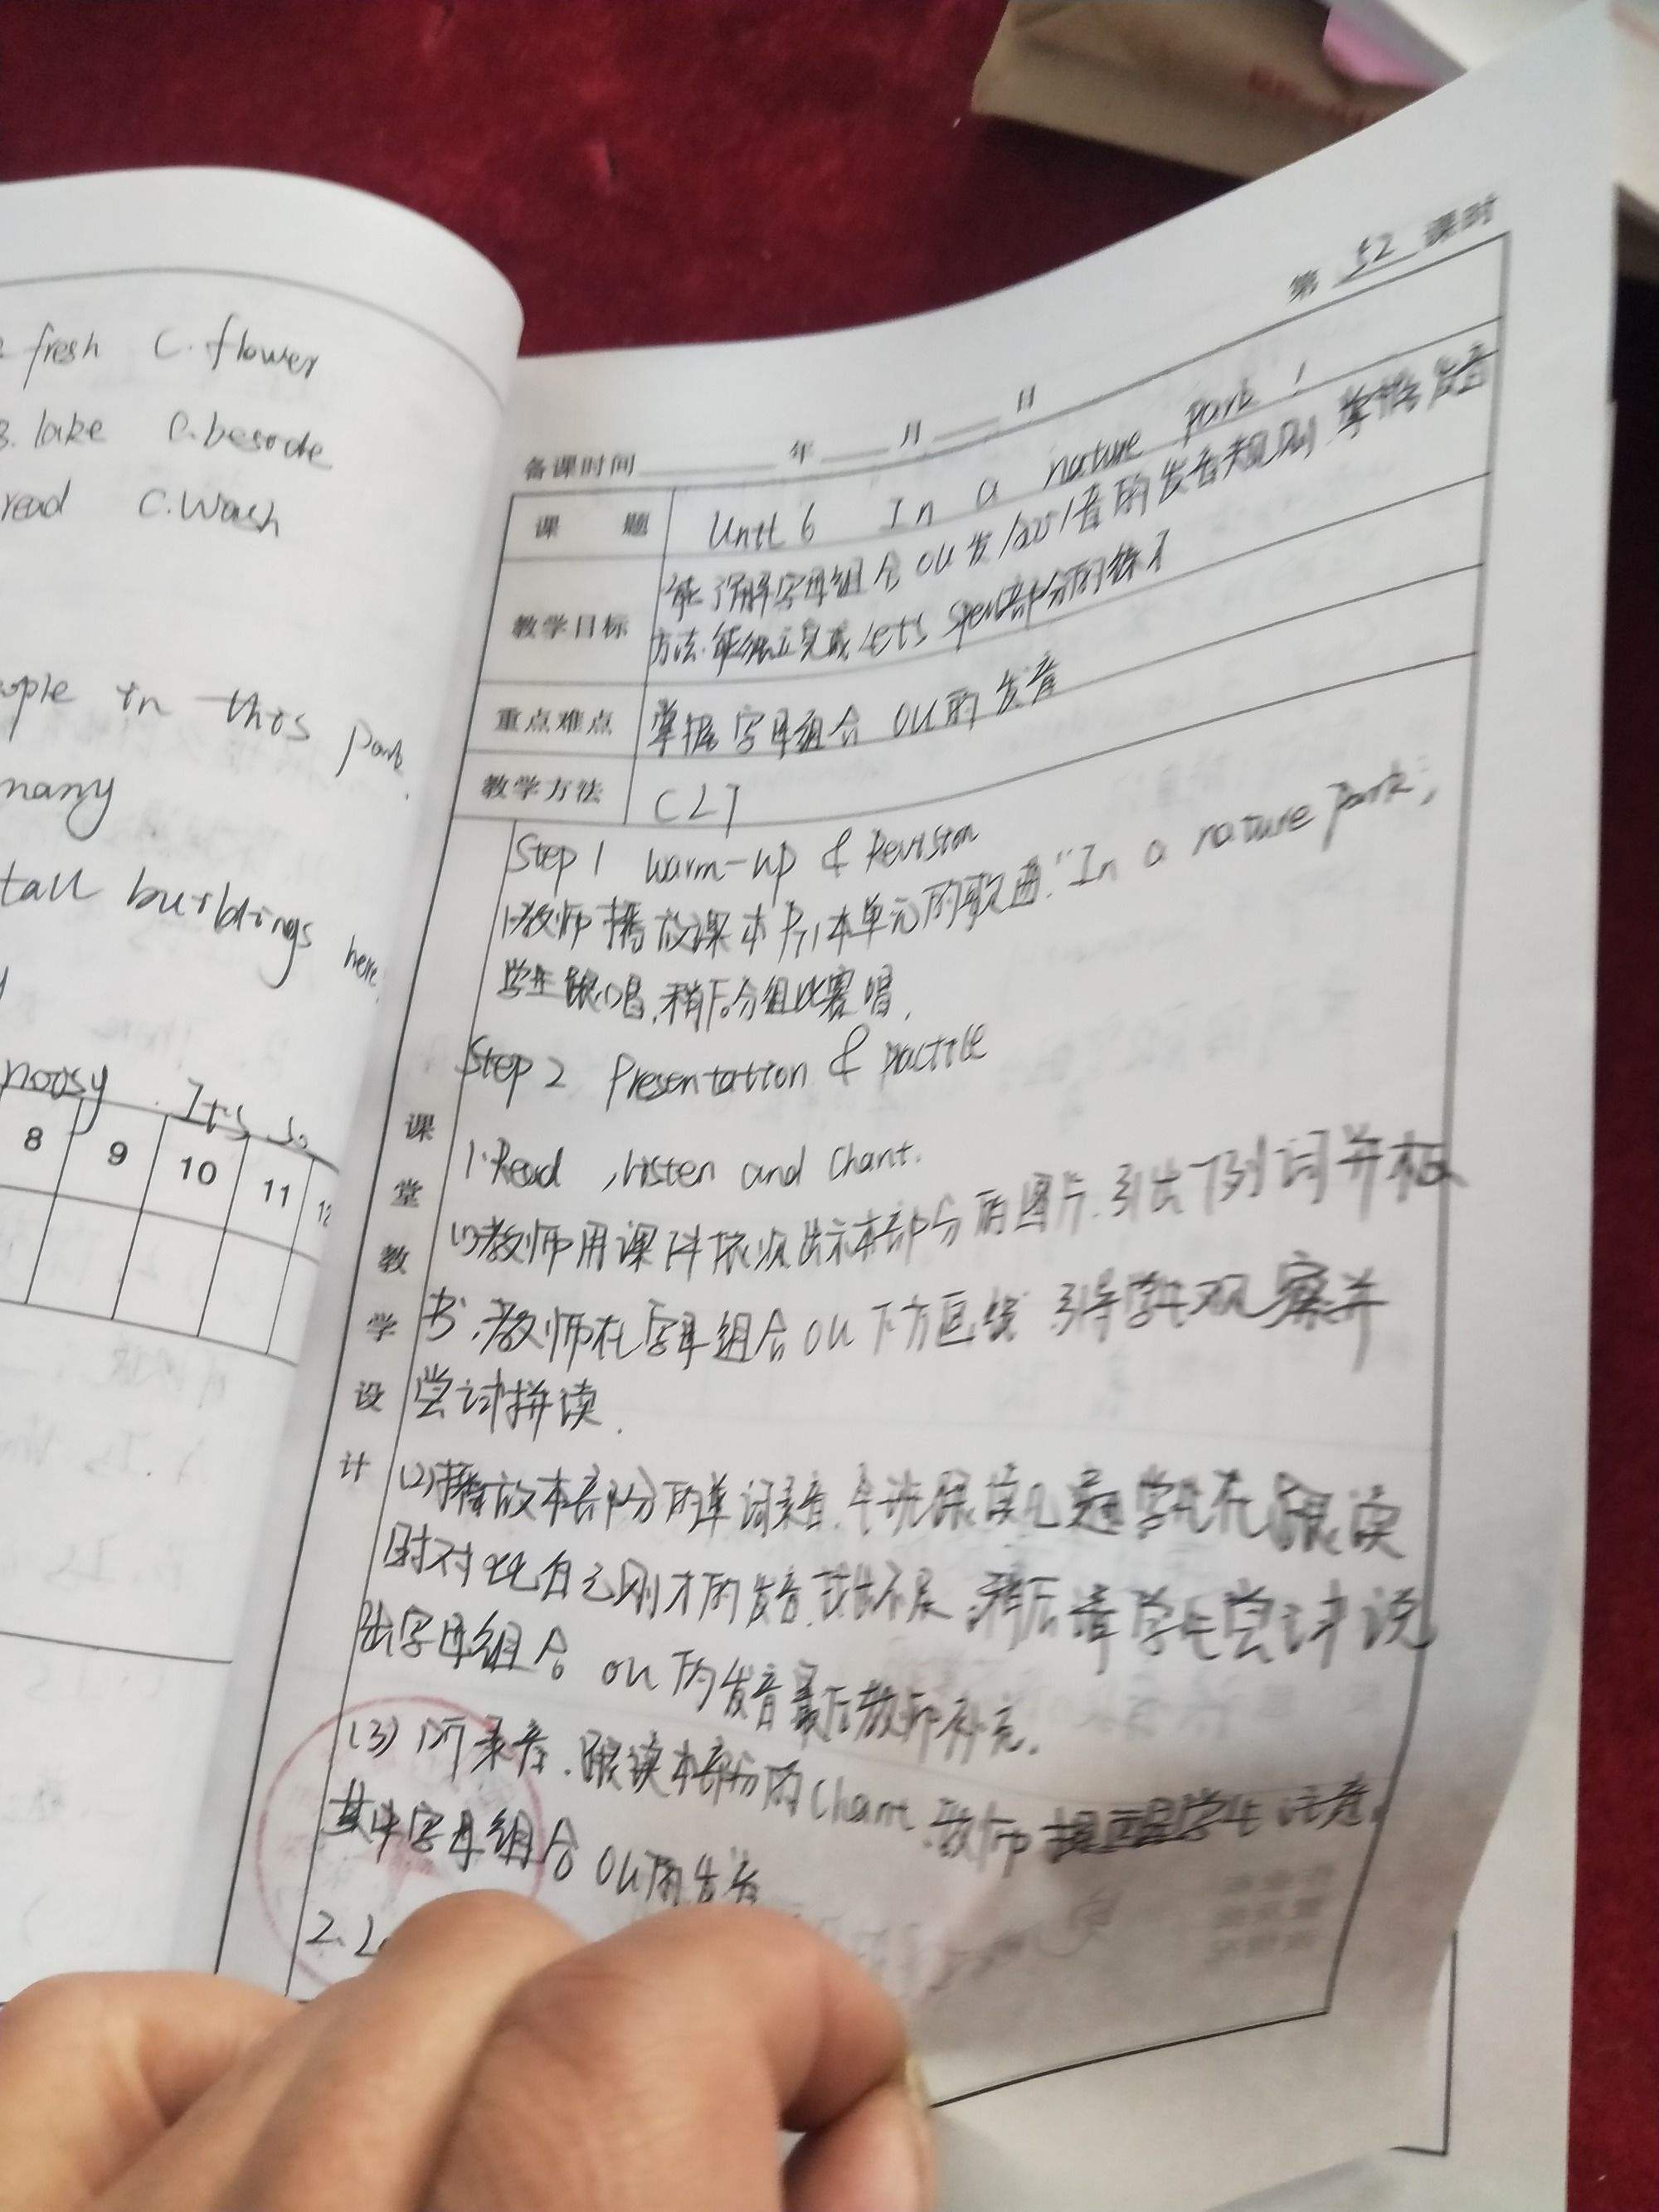 fresh C. flower
3. lake C. beside
read C. Wash
ople in this park.
many
tall buildings here.
noisy. It's so
8 9 10 11 12
第 52 课时
备课时间 年 月 日
课题 Unit 6 In a nature park !
教学目标 能了解字母组合 ou 发/au/音的发音规则,掌握发音
方法.能独立完成 Let's spell部分的练习
重点难点 掌握字母组合 ou 的发音
教学方法 CLT
课堂教学设计
Step 1 Warm-up & Revision
1.教师播放课本 本单元的歌曲:"In a nature park",
学生跟唱,稍后分组比赛唱.
Step 2 Presentation & Practice
1. Read, Listen and Chant.
(1)教师用课件依次出示本部分的图片.引出下列词并板
书.教师在字母组合 ou 下方画线 引导学生观察并
尝试拼读.
(2)播放本部分的单词录音.全班跟读几遍 学生在跟读
时对比自己刚才的发音.找出不足.稍后请学生尝试说
出字母组合 ou 的发音最后教师补充.
(3)听录音.跟读本部分的Chant.教师提醒学生注意
其中字母组合 ou 的发音
2. L